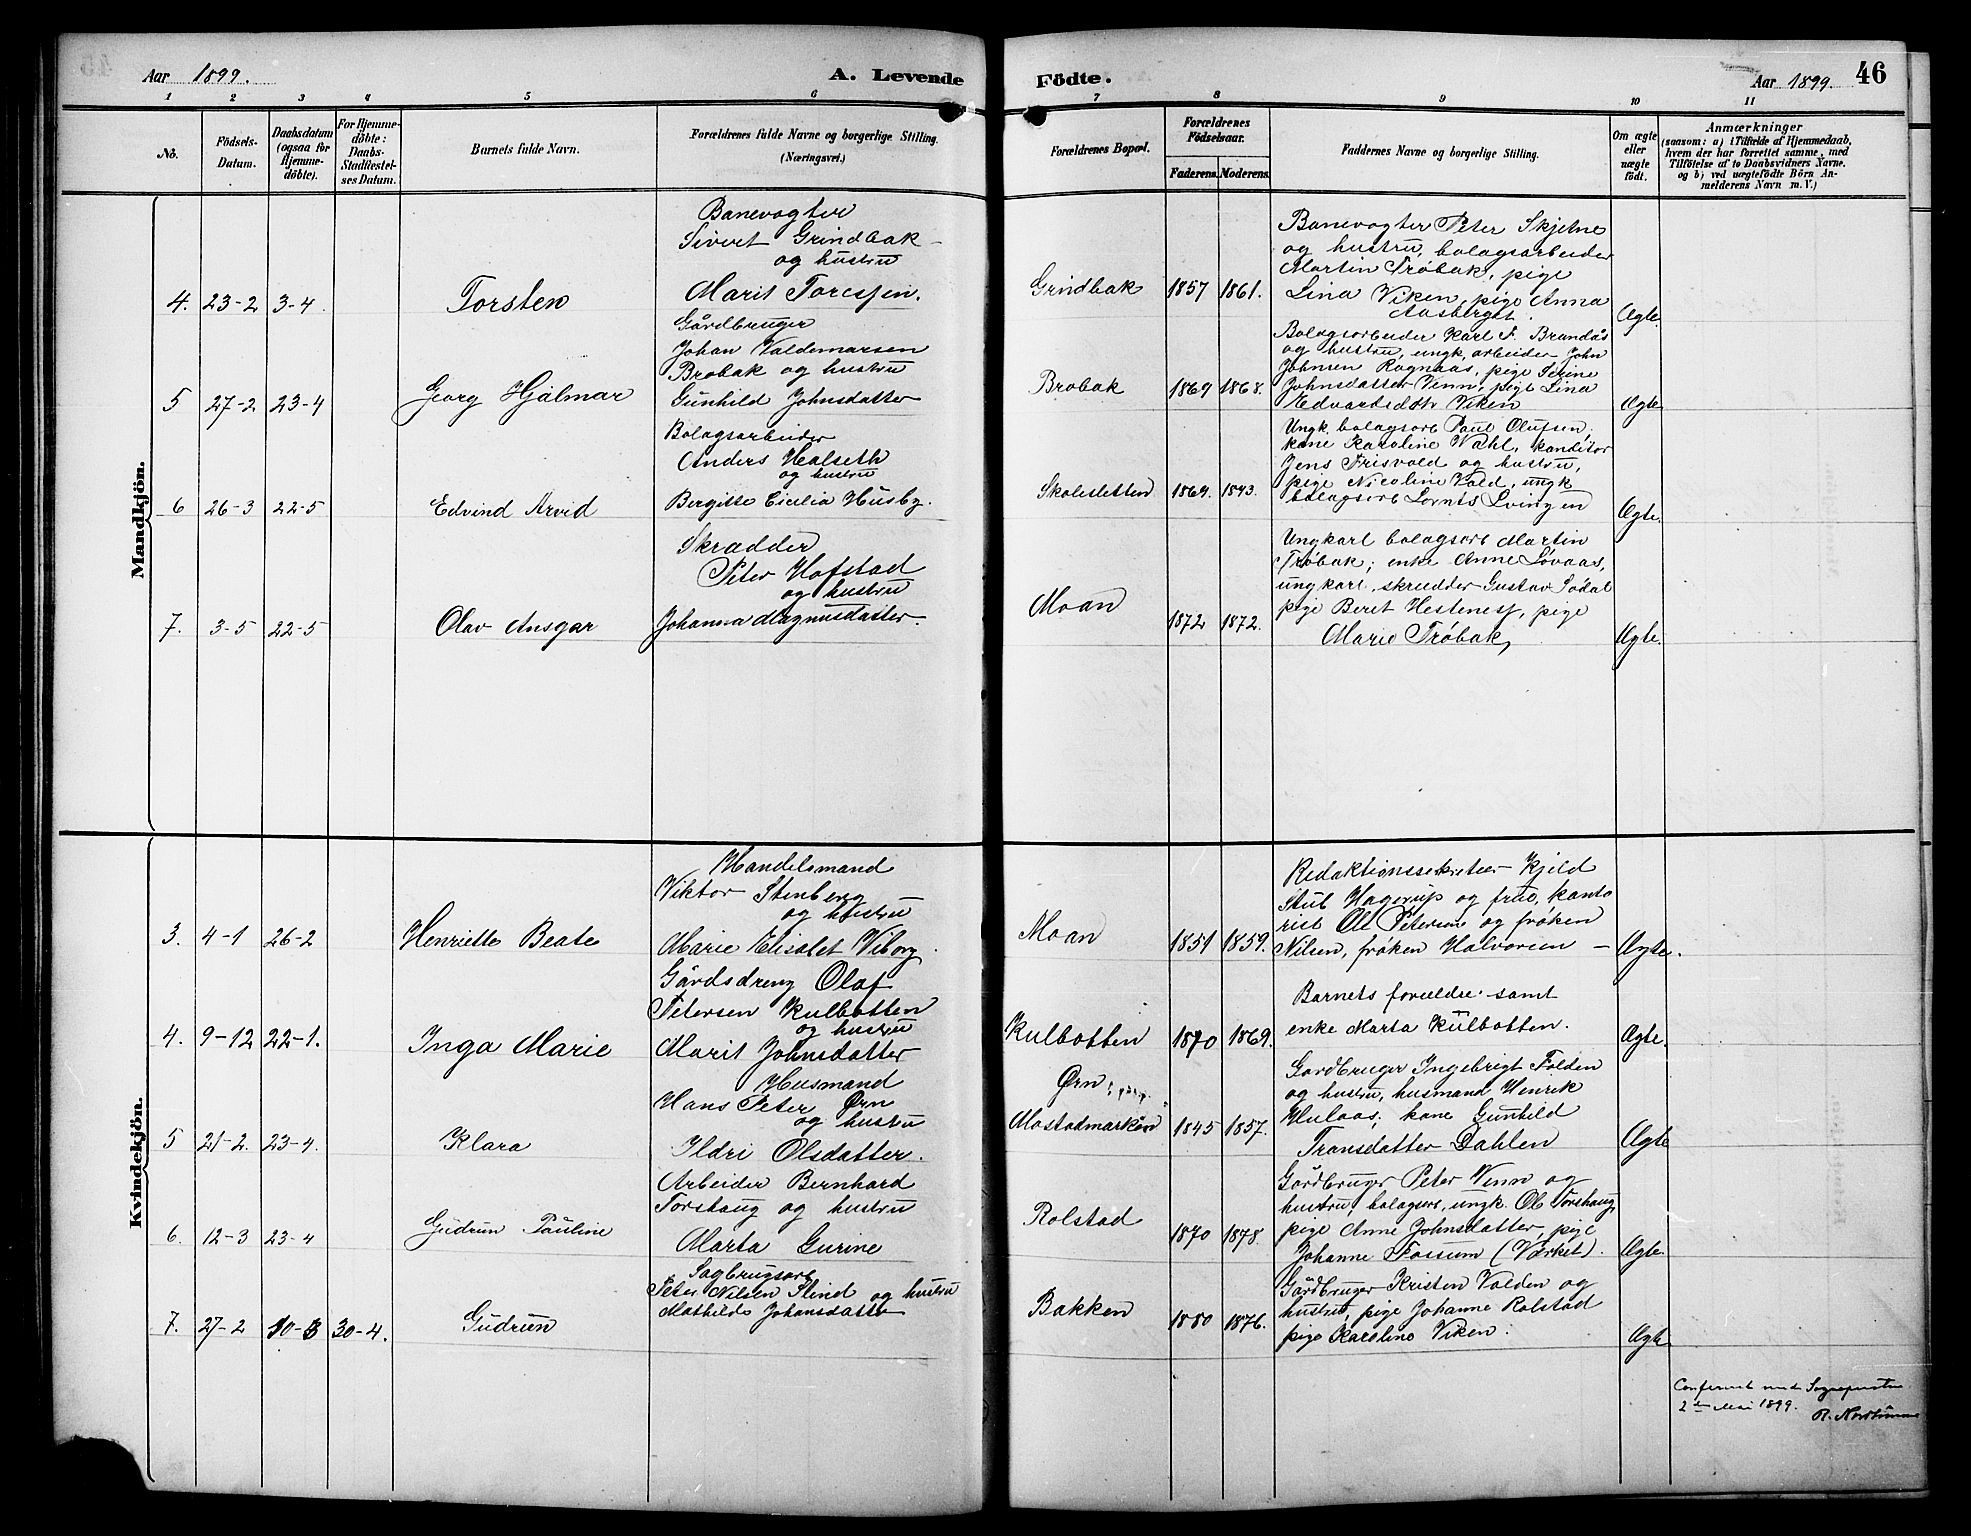 Aar 1899.
A. Levende Födte.
Aar 1899.
46
1 2 3 4 5 6 7 8 9 10 11
No.
Födsels-
Datum.
Daabsdatum
(ogsaa for
Hjemme-
döbte).
For Hjemme-
döbte:
Daabs-
Stadfæstel-
ses Datum.
Barnets fulde Navn.
Forældrenes fulde Navne og borgerlige Stilling.
(Næringsvei.)
Forældrenes Bopæl.
Forældrenes
Födselsaar.
Faderens. Moderens.
Faddernes Navne og borgerlige Stilling.
Om ægte
eller
uægte
födt.
Anmærkninger
(saasom: a) i Tilfælde af Hjemmedaab,
hvem der har forrettet samme, med
Tilföielse af to Daabsvidners Navne,
og b) ved uægtefödte Börn An-
melderens Navn m. V.)
Mandkjön.
4. 23-2 3-4. Torsten
Banevogter
Sivert Grindbak
og hustru
Marit Toresen.
Grindbak 1857 1861.
Banevogter Peter Skjelne
og hustru, bolagsarbeider
Martin Tröbak, pige
Lina Viken, pige Anna
Aasberget.
Ægte.
5 27-2 23-4 Georg Hjalmar
Gårdbruger
Johan Valdemarsen
Brobak og hustru
Gunhild Johnsdatter
Brobak 1869 1868.
Bolagsarbeider Karl P. Brandås
og hustru, ungk. arbeider John
Johnsen Rognaas, pige Serine
Johnsdatter Venn, pige Lina
Edvardsdatr Viken
Ægte
6 26-3 22-5 Edvind Arvid
Bolagsarbeider
Anders Halseth
og hustru
Bergitte Cicilia Husby.
Skolesletten 1864. 1843.
Ungk. bolagsarb Paul Olufsen,
kone Karoline Wahl, konditor
Jens Frisvold og hustru,
pige Nicoline Vold, ungk
bolagsarb Lornts Svingen
Ægte.
7. 3-5 22-5 Olav Ansgar
Skrædder
Peter Hofstad
og hustru
Johanna Magnusdatter.
Moan 1872 1872.
Ungkarl bolagsarb Martin
Tröbak; enke Anne Lövaas,
ungkarl, skrædder Gustav Södal
pige Beret Hestenes, pige
Marie Tröbak,
Ægte.
Kvindekjön.
3. 4-1 26-2 Henriette Beate
Handelsmand
Viktor Stenberg
og hustru
Marie Elisabet Viborg.
Moan 1851 1859.
Redaktionssekretær Kjeld
Stub Hagerup og frue, kanto
rist Ole Petersen og fröken
Nilsen, fröken Halvorsen –
Ægte.
4. 9-12 22-1. Inga Marie
Gårdsdreng Olaf
Petersen Kulbotten
og hustru
Marit Johnsdatter
Kulbotten 1870 1869.
Barnets forældre samt
enke Marta Kulbotten.
Ægte.
5 21-2. 23-4. Klara
Husmand
Hans Peter Ørn
og hustru
Ildri Olsdatter.
Ørn
Mostadmarken 1845 1857.
Gårdbruger Ingebrigt Folden
og hustru, husmand Henrik
Hulaas, kone Gunhild
Transdatter Dahlen
Ægte
6. 12-3 23-4 Gudrun Pauline
Arbeider Bernhard
Torshaug og hustru
Marta Gurine
Rolstad 1870 1878.
Gårdbruger Peter Venn og
hustru, bolagsarb, ungk. Ole Torshaug,
pige Anne Johnsdatter, pige
Johanne Fossum (Værket).
Ægte
7. 27-2 10-3 30-4. Gudrun
Sagbrugsarb
Peter Nilsen Slind og hustru
Mathilde Johansdatter
Bakken 1880 1876.
Gårdbruger Kristen Volden og
hustru, pige Johanne Rolstad
pige Karoline Viken.
Ægte
Confereret med Sognepresten
2den Mai 1899.